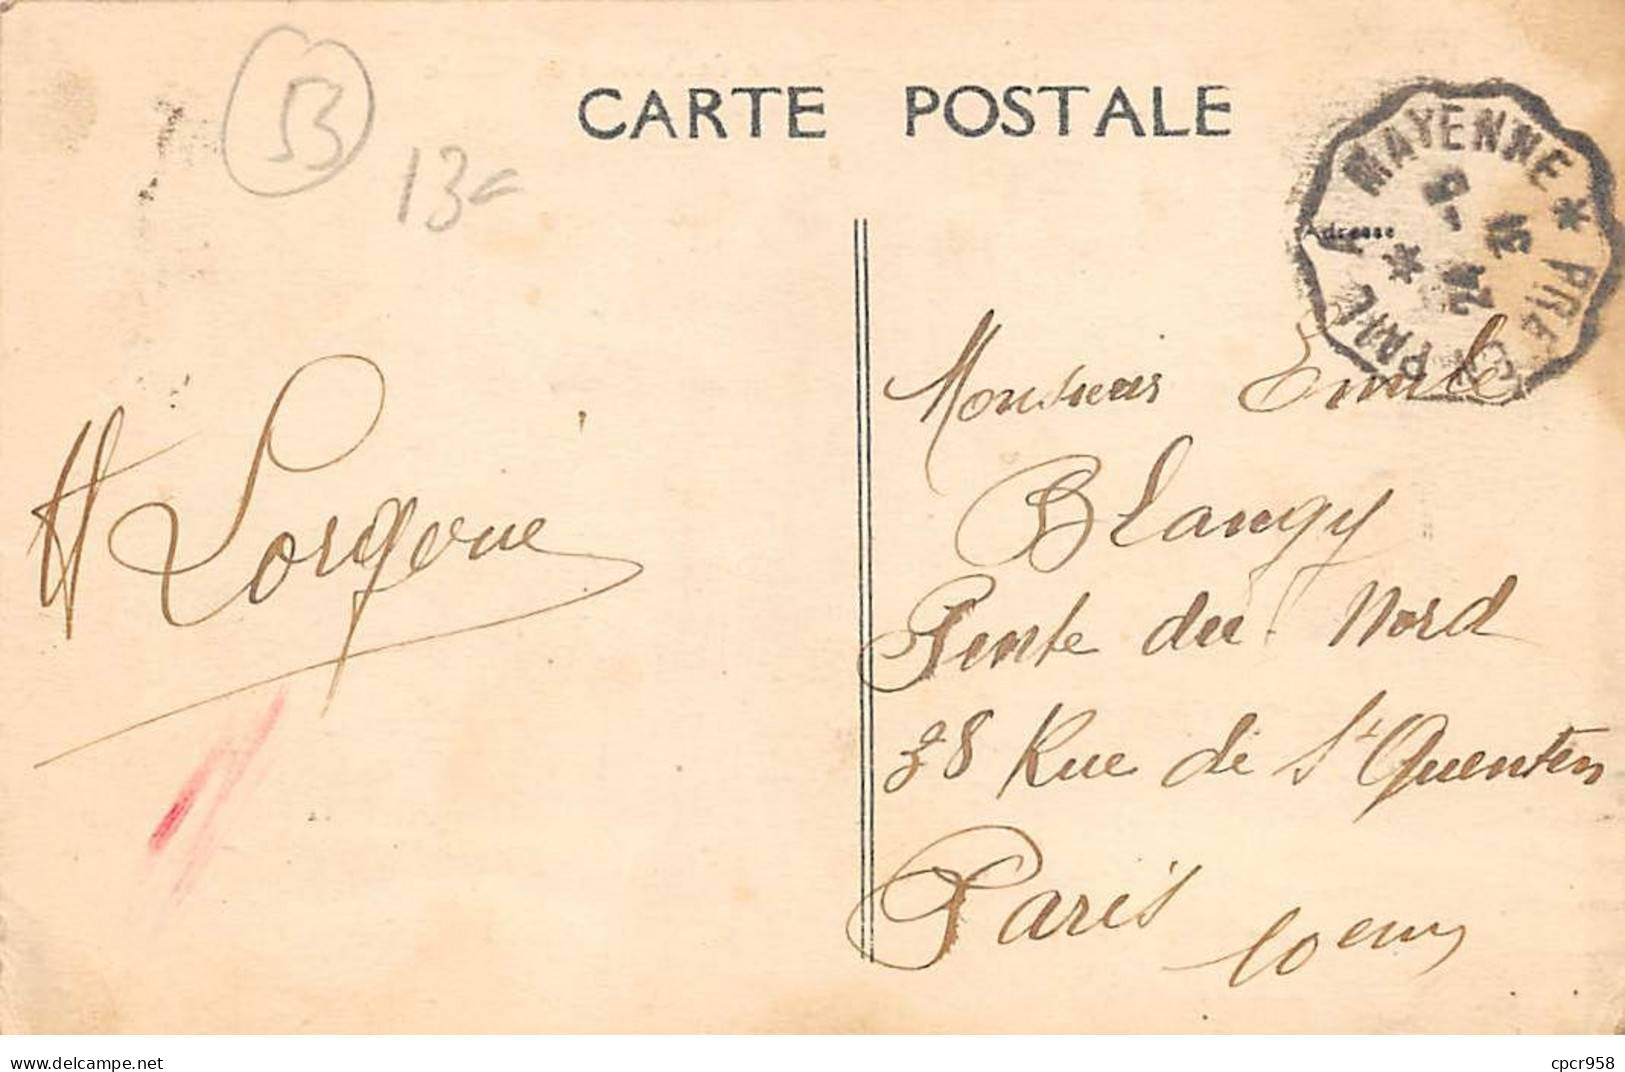 53
13
CARTE POSTALE
MAYENNE * PRE
Adresse
H Lorgerie
Monsieur Emile
Blangy
Pente du Nord
38 Rue de St Quentin
Paris 10eme
delcampe.net
cpcr958